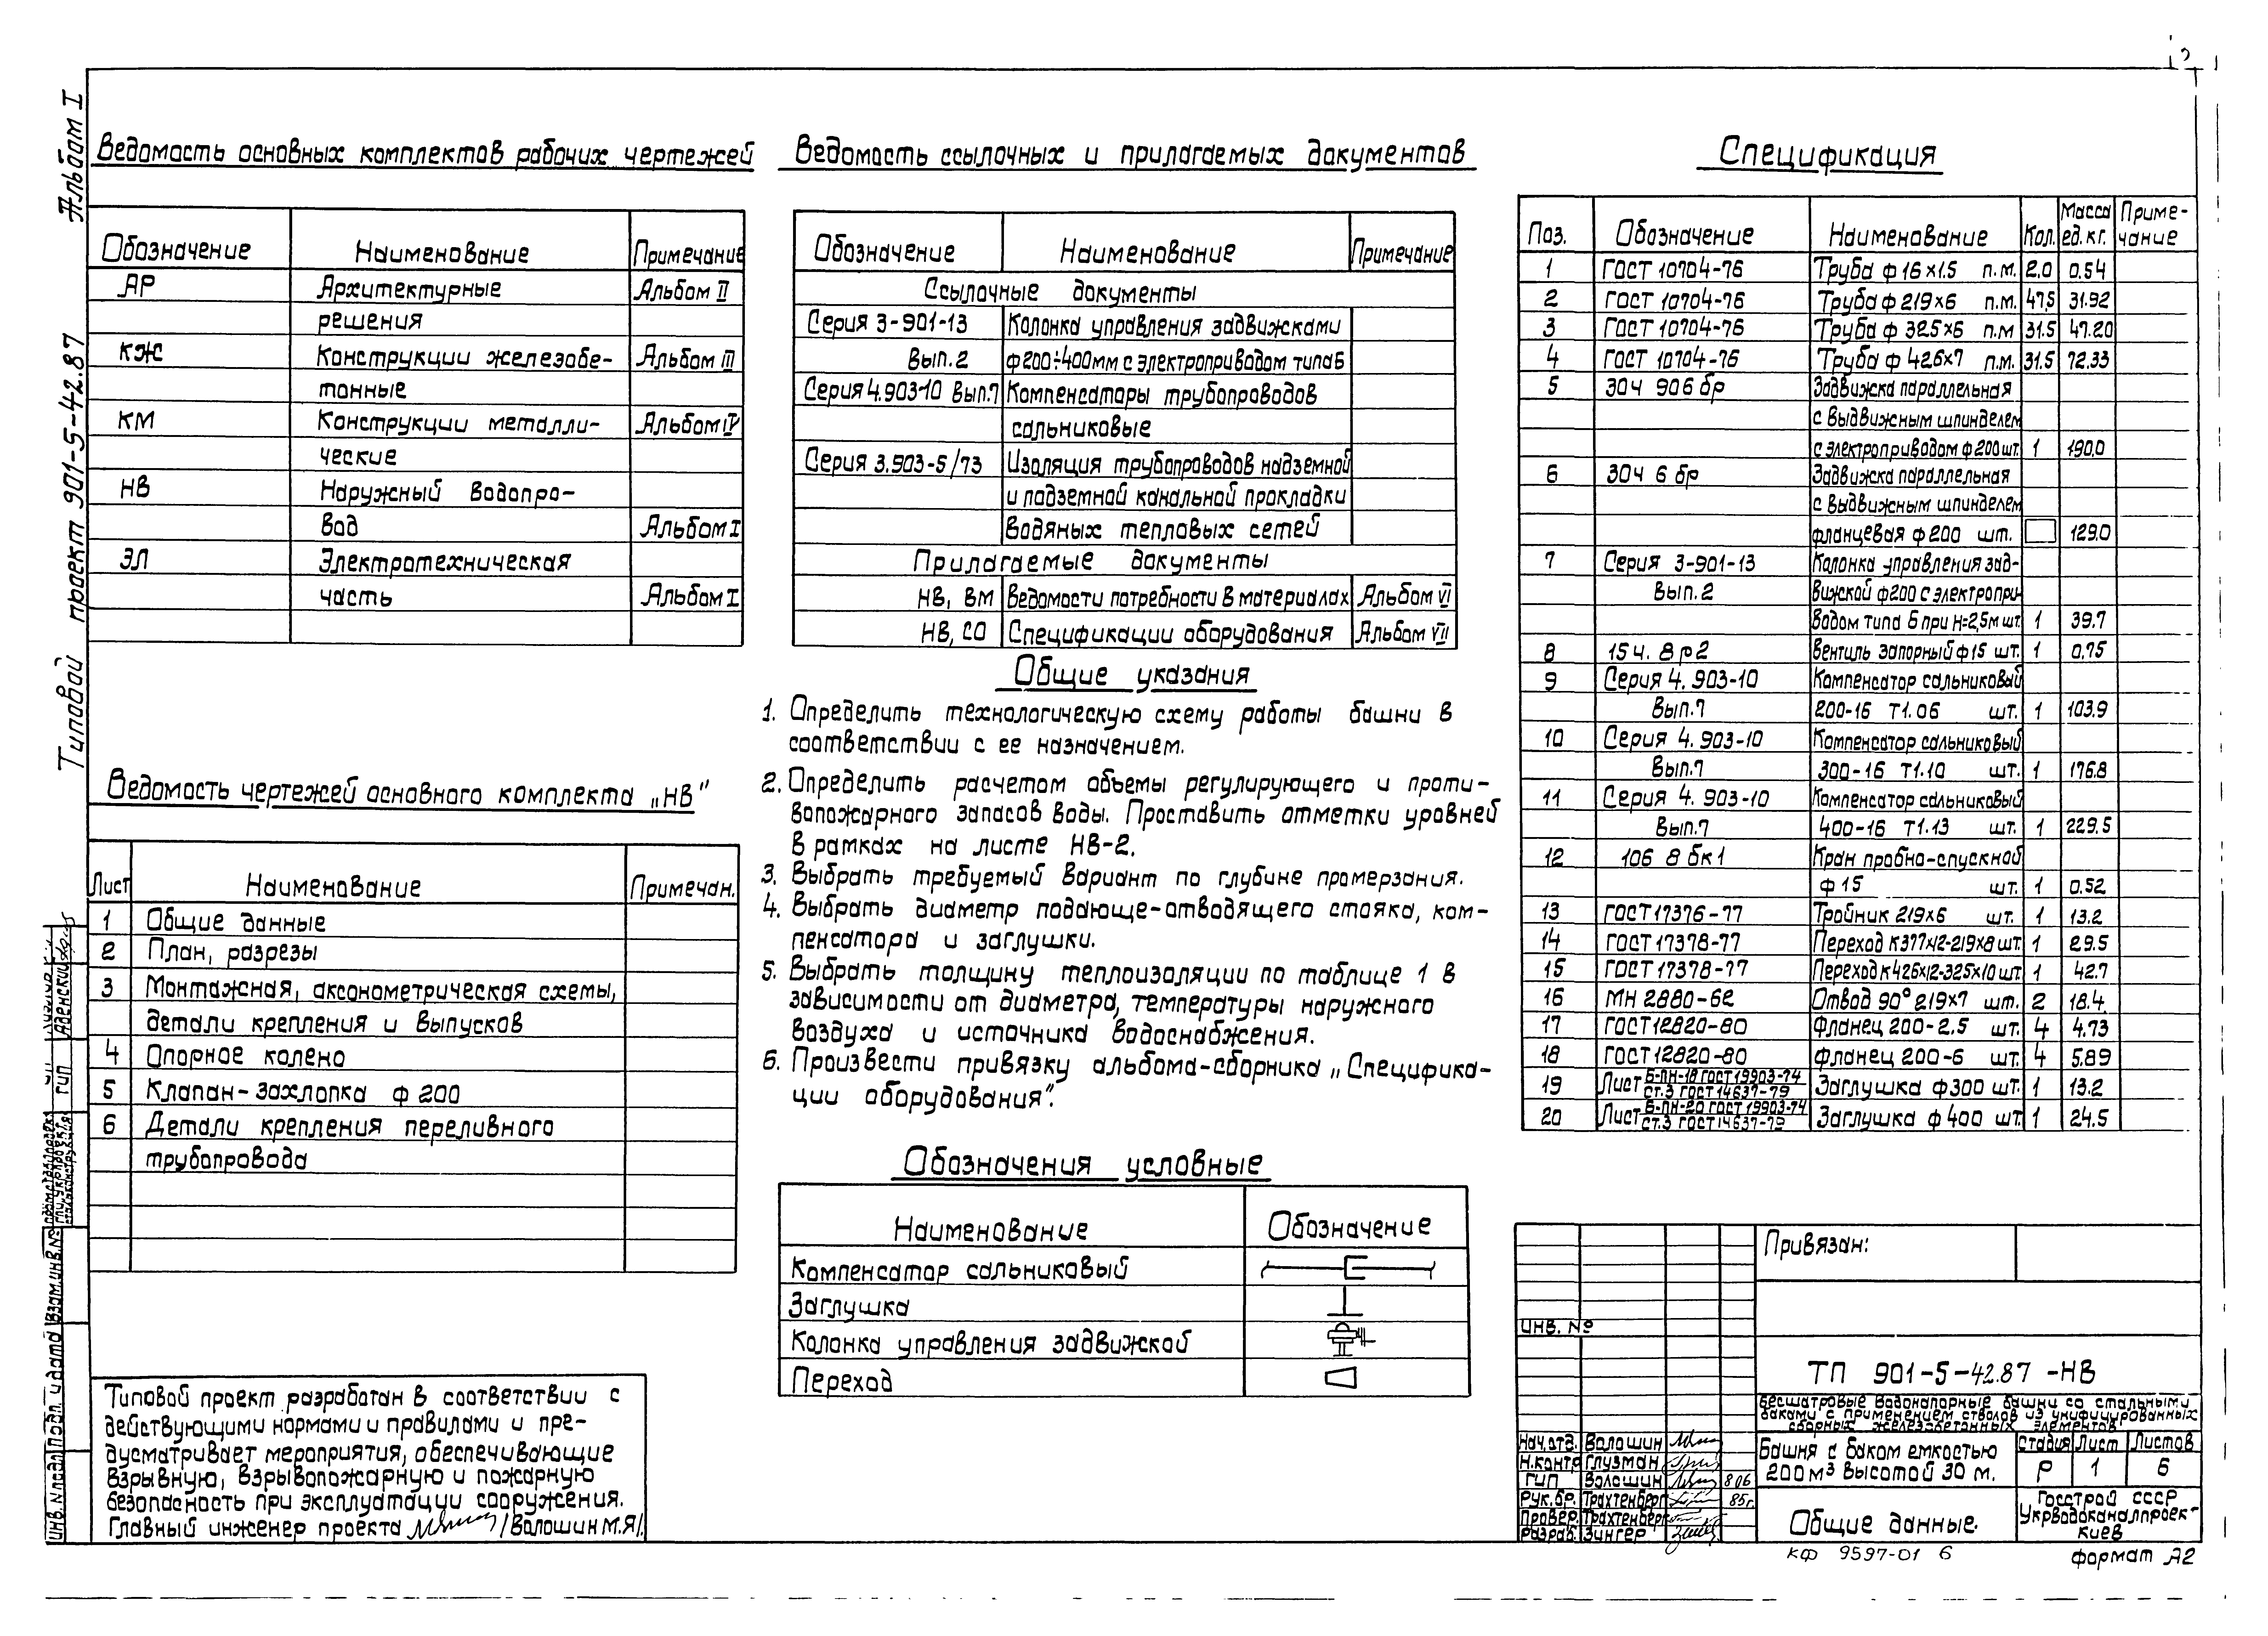 Альбом I
Типовой проект 901-5-42.87
Ведомость основных комплектов рабочих чертежей
Обозначение Наименование Примечание
АР Архитектурные Альбом II
решения
КЖ Конструкции железобе- Альбом III
тонные
КМ Конструкции металли- Альбом IV
ческие
НВ Наружный водопро-
вод Альбом I
ЭЛ Электротехническая
часть Альбом I
Ведомость чертежей основного комплекта „НВ"
Лист Наименование Примечан.
1 Общие данные
2 План, разрезы
3 Монтажная, аксонометрическая схемы,
детали крепления и выпусков
4 Опорное колено
5 Клапан-захлопка ф 200
6 Детали крепления переливного
трубопровода
Типовой проект разработан в соответствии с
действующими нормами и правилами и пре-
дусматривает мероприятия, обеспечивающие
взрывную, взрывопожарную и пожарную
безопасность при эксплуатации сооружения.
Главный инженер проекта /Волошин М.Я/.
Ведомость ссылочных и прилагаемых документов
Обозначение Наименование Примечание
Ссылочные документы
Серия 3-901-13 Колонка управления задвижками
Вып.2 ф200÷400мм с электроприводом типа Б
Серия 4.903-10 Вып.7 Компенсаторы трубопроводов
сальниковые
Серия 3.903-5/73 Изоляция трубопроводов надземной
и подземной канальной прокладки
водяных тепловых сетей
Прилагаемые документы
НВ, ВМ Ведомости потребности в материалах Альбом VI
НВ, СО Спецификации оборудования Альбом VII
Общие указания
1. Определить технологическую схему работы башни в
соответствии с ее назначением.
2. Определить расчетом объемы регулирующего и проти-
вопожарного запасов воды. Проставить отметки уровней
в рамках на листе НВ-2.
3. Выбрать требуемый вариант по глубине промерзания.
4. Выбрать диаметр подающе-отводящего стояка, ком-
пенсатора и заглушки.
5. Выбрать толщину теплоизоляции по таблице 1 в
зависимости от диаметра, температуры наружного
воздуха и источника водоснабжения.
6. Произвести привязку альбома-сборника „Специфика-
ции оборудования".
Обозначения условные
Наименование Обозначение
Компенсатор сальниковый
Заглушка
Колонка управления задвижкой
Переход
Спецификация
Поз. Обозначение Наименование Кол. Масса ед.кг. Приме-чание
1 ГОСТ 10704-76 Труба ф 16×1.5 п.м. 2.0 0.54
2 ГОСТ 10704-76 Труба ф 219×6 п.м. 47,5 31.92
3 ГОСТ 10704-76 Труба ф 325×6 п.м 31.5 47.20
4 ГОСТ 10704-76 Труба ф 426×7 п.м. 31.5 72.33
5 30ч 906 бр Задвижка параллельная
с выдвижным шпинделем
с электроприводом ф 200 шт. 1 190.0
6 30ч 6 бр Задвижка параллельная
с выдвижным шпинделем
фланцевая ф 200 шт. 129.0
7 Серия 3-901-13 Колонка управления зад-
Вып.2 вижкой ф200 с электропри-
водом типа Б при Н=2,5м шт. 1 39.7
8 15ч. 8р2 Вентиль запорный ф 15 шт. 1 0.75
9 Серия 4. 903-10 Компенсатор сальниковый
Вып.7 200-16 Т1.06 шт. 1 103.9
10 Серия 4. 903-10 Компенсатор сальниковый
Вып.7 300-16 Т1.10 шт. 1 176.8
11 Серия 4. 903-10 Компенсатор сальниковый
Вып.7 400-16 Т1.13 шт. 1 229.5
12 10б 8 бк1 Кран пробно-спускной
ф 15 шт. 1 0.52
13 ГОСТ 17376-77 Тройник 219×6 шт. 1 13.2
14 ГОСТ 17378-77 Переход К377×12-219×8 шт. 1 29.5
15 ГОСТ 17378-77 Переход К426×12-325×10 шт. 1 42.7
16 МН 2880-62 Отвод 90° 219×7 шт. 2 18.4
17 ГОСТ 12820-80 Фланец 200-2.5 шт. 4 4.73
18 ГОСТ 12820-80 Фланец 200-6 шт. 4 5.89
19 Лист Б-ПН-18 ГОСТ 19903-74 Ст.3 ГОСТ 14637-79 Заглушка ф300 шт. 1 13.2
20 Лист Б-ПН-20 ГОСТ 19903-74 Ст.3 ГОСТ 14637-79 Заглушка ф 400 шт. 1 24.5
Привязан:
Инв. №
ТП 901-5-42.87 -НВ
Бесшатровые водонапорные башни со стальными
баками с применением стволов из унифицированных
сборных железобетонных элементов
Нач.отд. Волошин
Н.контр Глузман
ГИП Волошин 806
Рук.бр. Трахтенберг 85г.
Провер. Трахтенберг
Разраб. Зингер
Башня с баком емкостью
200 м³ высотой 30 м.
Стадия Лист Листов
Р 1 6
Общие данные.
Госстрой СССР
Укрводоканалпроект
Киев
КФ 9597-01 6
формат А2
ГИП Аденский
Инв. № подл. Подп. и дата Взам.инв.№